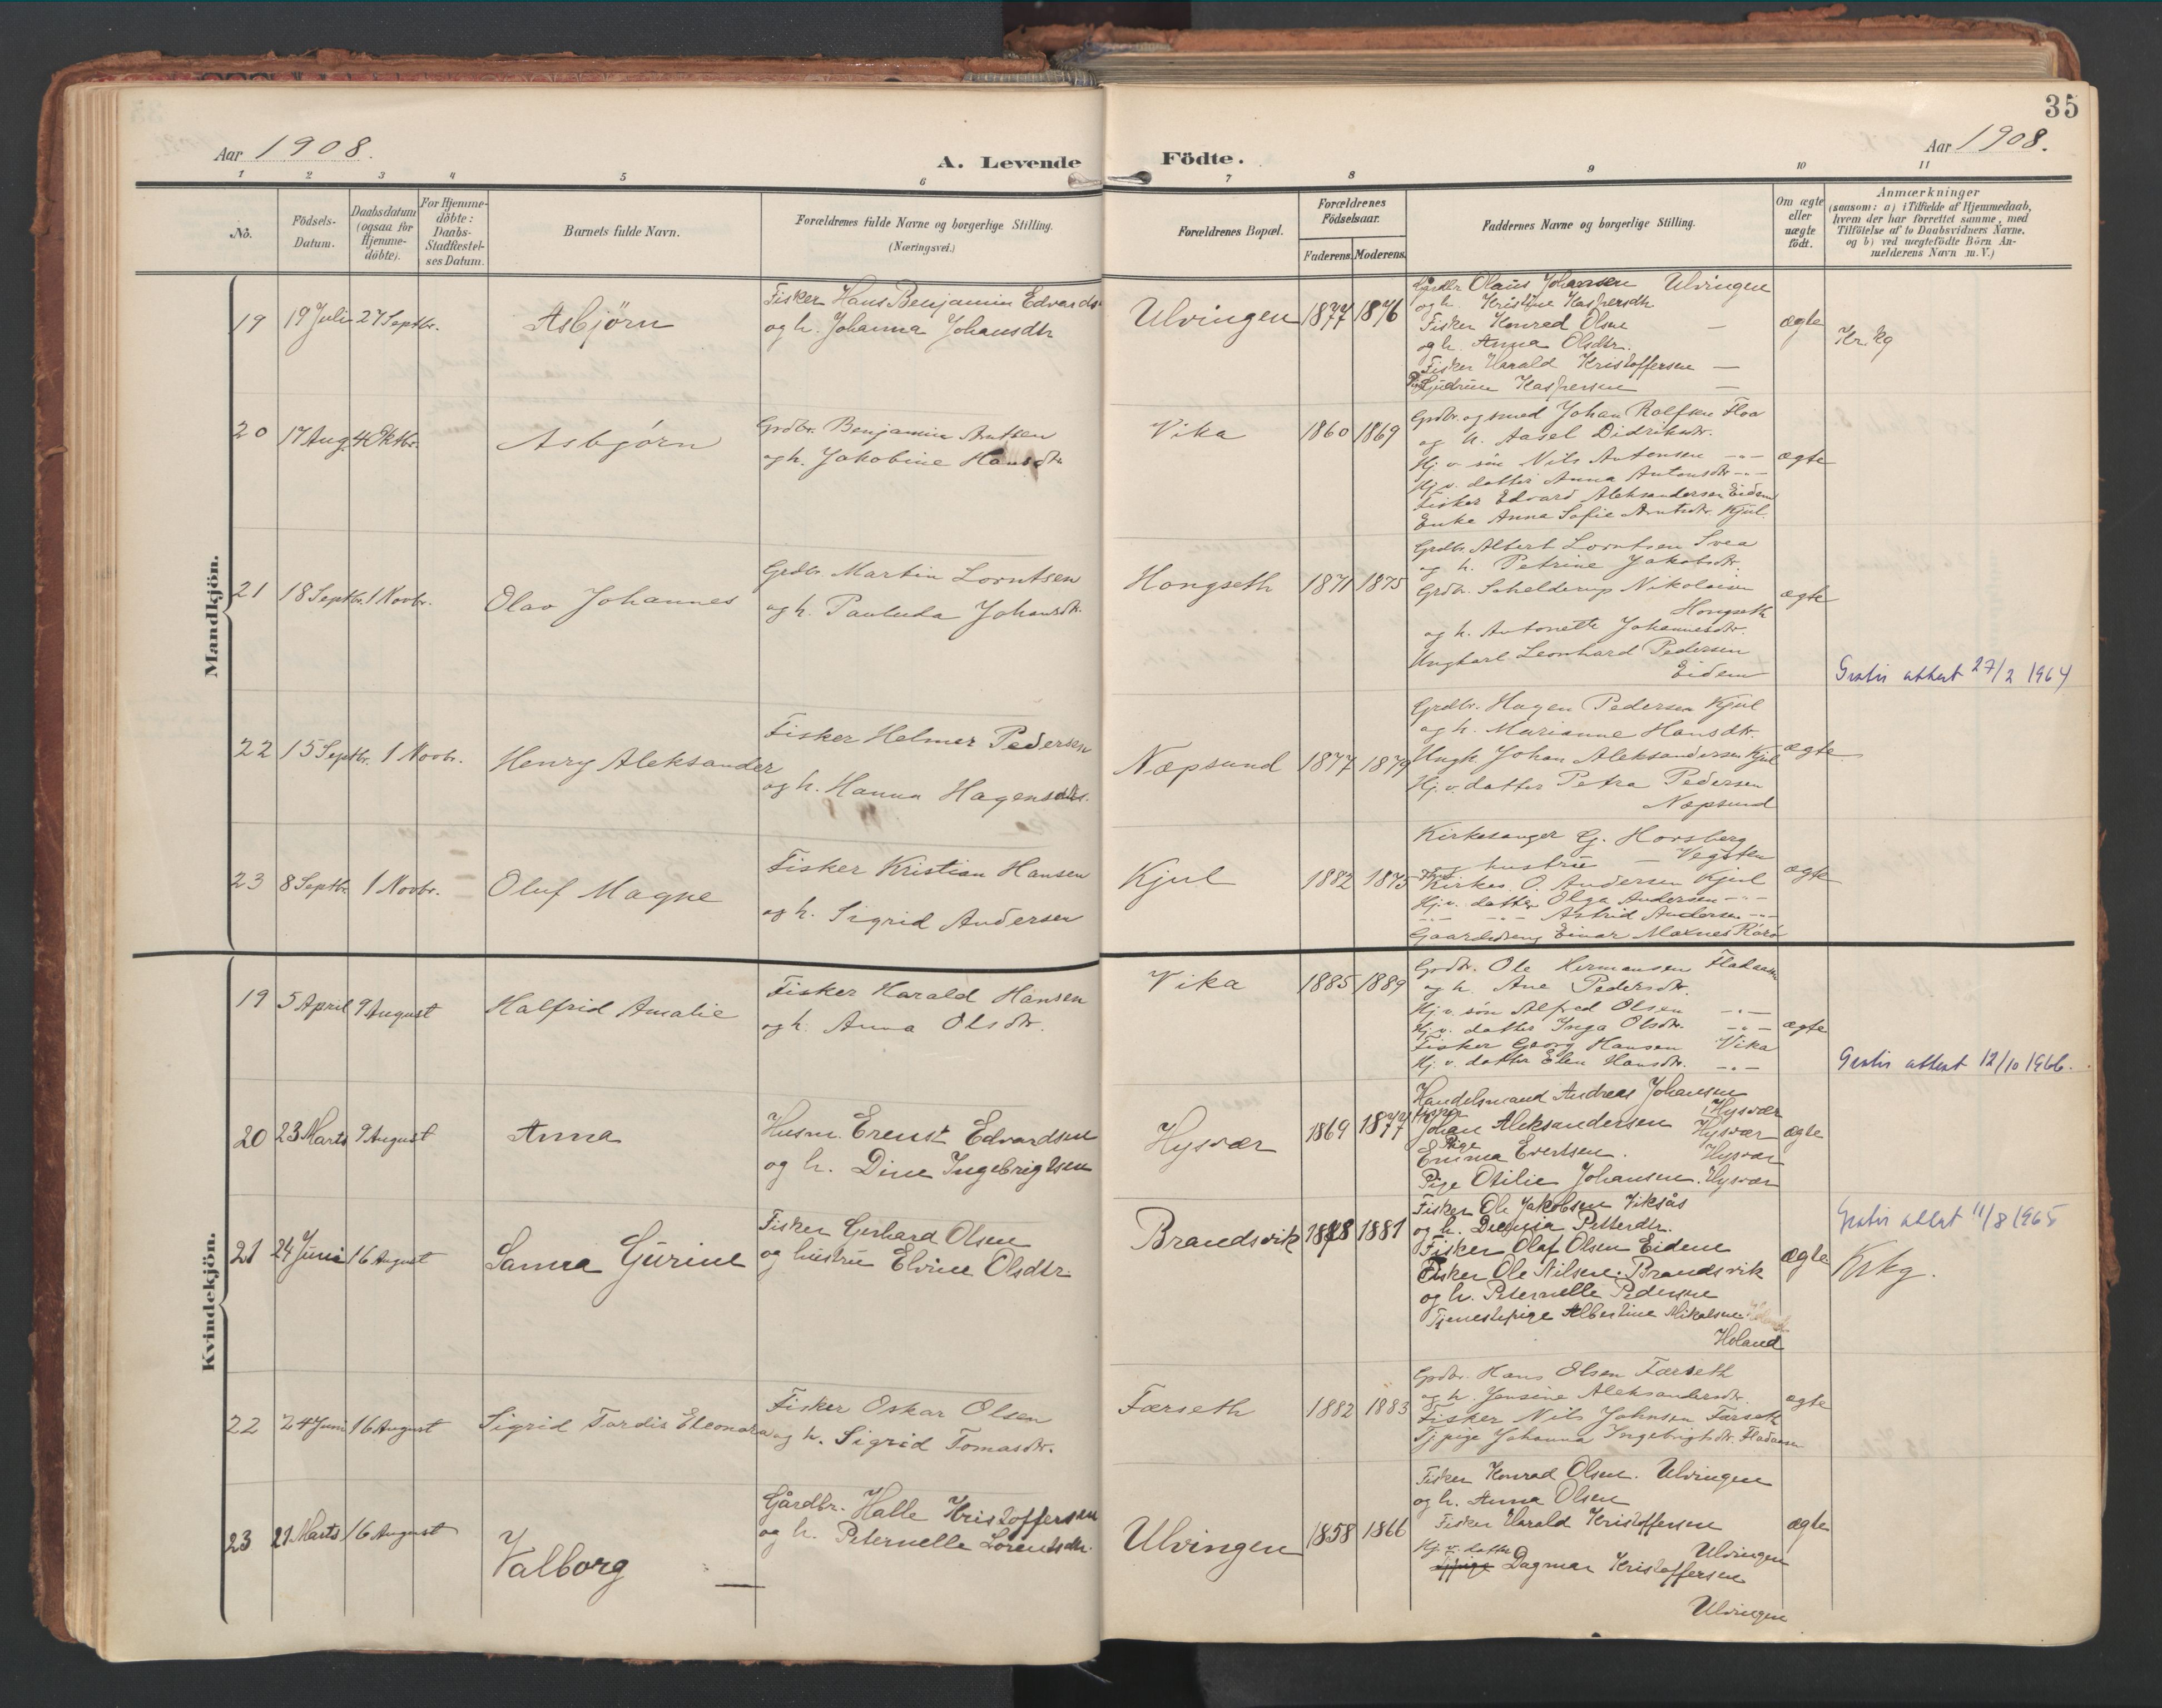 35
Aar 1908.
A. Levende Födte.
Aar 1908.
1 2 3 4 5 6 7 8 9 10 11
No.
Födsels-Datum.
Daabsdatum (ogsaa for Hjemme-döbte).
For Hjemme-döbte: Daabs-Stadfæstel-ses Datum.
Barnets fulde Navn.
Forældrenes fulde Navne og borgerlige Stilling.
(Næringsvei.)
Forældrenes Bopæl.
Forældrenes Födselsaar.
Faderens. Moderens.
Faddernes Navne og borgerlige Stilling.
Om ægte eller uægte födt.
Anmærkninger
(saasom: a) i Tilfælde af Hjemmedaab,
hvem der har forrettet samme, med
Tilföielse af to Daabsvidners Navne,
og b) ved uægtefödte Börn An-
melderens Navn m.V.)
Mandkjön.
19 19 Juli 27 Septbr. Asbjörn
Fisker Hans Benjamin Edvards
og h. Johanna Johansdtr
Ulvingen 1877 1876
Gårdbr Olaus Johansen Ulvingen
og h. Kristine Kaspersdtr
Fisker Konrad Olsen —
og h. Anna Olsdtr.
Fisker Harald Kristoffersen —
Gudrun Kaspersen —
ægte
Kr.kg
20 17 Aug. 4 Oktbr. Asbjørn
Grdbr. Benjamin Arntsen
og h. Jakobine Hansdtr
Vika 1860 1869
Grdbr. og smed Johan Rolfsen Floa
og h. Aasel Didriksdtr.
Hj. v. sön Nils Antonsen -"-
Hj. v. datter Anna Antonsdtr -"-
Fisker Edvard Aleksandersen Eidem
Enke Anna Sofie Arntsdtr. Kjul.
ægte
21 18 Septbr. 1 Novbr. Olav Johannes
Grdbr Martin Lorntsen
og h. Paulinda Johansdtr.
Hongseth 1871 1875
Grdbr. Albert Lorntsen Svea
og h. Petrine Jakobsdtr.
Grdbr. Schelderup Nikolaisen
Hongseth
og h. Antonette Johannesdtr.
Ungkarl Leonhard Pedersen
Eidem
ægte
Gratis attest 27/2 1964
22 15 Septbr. 1 Novbr. Henry Aleksander
Fisker Helmer Pedersen
og h. Hanna Hagensdtr.
Næpsund 1877 1879
Grdbr. Hagen Pedersen Kjul
og h. Marianne Hansdtr.
Ungk. Johan Aleksandersen Kjul
Hj. v. datter Petra Pedersen
Næpsund
ægte
23 8 Septbr. 1 Novbr. Oluf Magne
Fisker Kristian Hansen
og h. Sigrid Andersen
Kjul 1882 1875
Kirkesanger G. Horsberg
og hustru — Vegsten
Kirkes. O. Andersen Kjul
Hj. v. datter Olga Andersen -"-
-"- -"- Astrid Andersen -"-
Gaardsdreng Einar Maxnes Rörö
ægte
Kvindekjön.
19 5 April 9 August Halfrid Amalie
Fisker Harald Hansen
og h. Anna Olsdtr.
Vika 1885 1889
Grdbr. Ole Hermansen Fladaasen
og h. Ane Pedersdtr.
Hj. v. sön Alfred Olsen -"-
Hj. v. datter Inga Olsdtr. -"-
Fisker Georg Hansen Vika
Hj. v. datter Elen Hansdtr. -"-
ægte
Gratis attest 12/10 1966.
20 23 Marts 9 August Anna
Husm. Ernst Edvardsen
og h. Dine Ingebrigtsen
Hysvær 1869 1877
Handelsmand Andreas Johansen
Hysvær
Fisker
Johan Aleksandersen Hysvær
Pige
Emma Evertsen. Hysvær
Pige Otilie Johansen. Hysvær
ægte
21 24 Juni 16 August Sanna Gurine
Fisker Gerhard Olsen
og hustru Elvine Olsdtr.
Brandsvik 1878 1881
Fisker Ole Jakobsen Viksås
og h. Petterdtr.
Fisker Olaf Olsen Eidem
Fisker Ole Nilsen. Brandsvik
og h. Peternelle Pedersen
Tjenestepige Albertine Mikalsen
Holand
ægte
Gratis attest 11/8 1965
Krkg.
22 24 Juni 16 August Sigrid Tordis Eleonora
Fisker Oskar Olsen
og h. Sigrid Tomasdtr.
Færseth 1882 1883
Grdbr. Hans Elsen Færseth
og h. Jensine Aleksandersdtr.
Fisker Nils Johnsen Færseth
Tj.pige Johanna Ingebrigtsdtr. Fladaasen
ægte
23 21 Marts 16 August Valborg —
Gårdbr. Halle Kristoffersen
og h. Peternelle Lorentsdtr.
Ulvingen 1858 1866
Fisker Konrad Olsen. Ulvingen
og h. Anna Olsen
Fisker Harald Kristoffersen
Ulvingen
Hj. v. datter
Tj.pige Dagmar Kristoffersen
Ulvingen
ægte